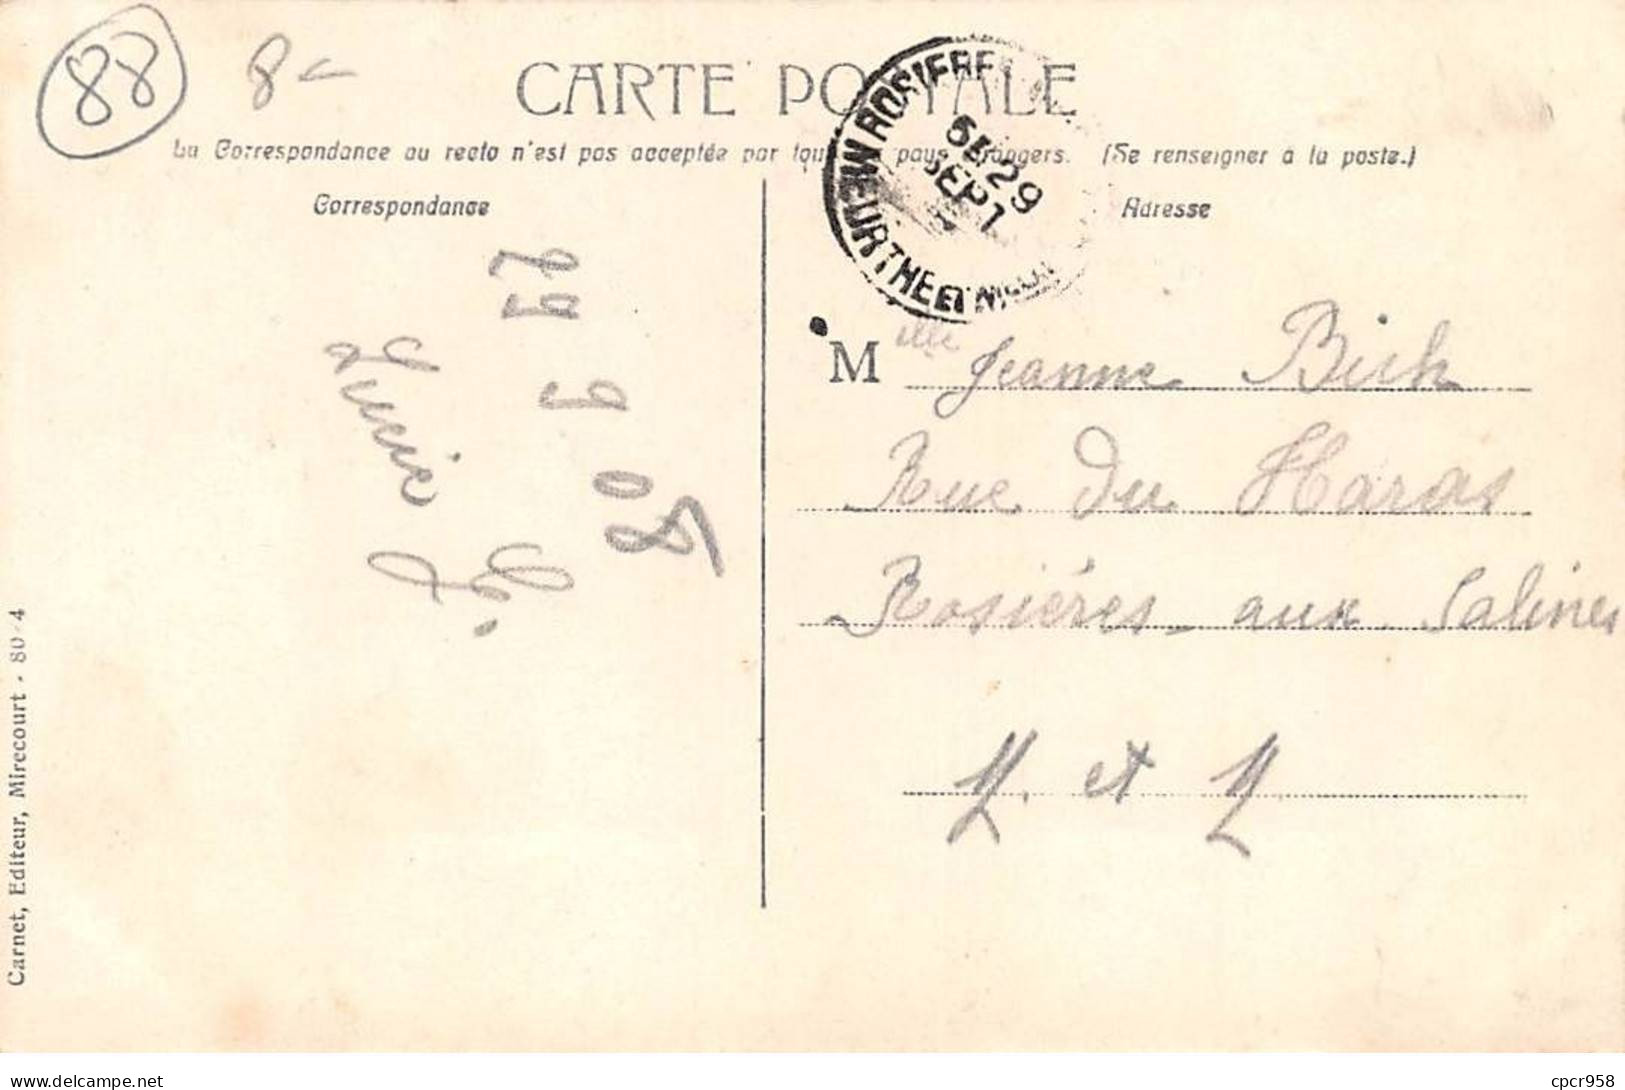 88
8 -
CARTE POSTALE
La Correspondance au recto n'est pas acceptée par tous pays étrangers. (Se renseigner à la poste.)
Correspondance
Adresse
ROSIERE
5E 29
SEPT
MEURTHE ET M
29 9 08
Lucie
M elle Jeanne
Rue du Haras
Rosières aux Salines
M. et M
Carnet, Editeur, Mirecourt - 80-4
cpcr958